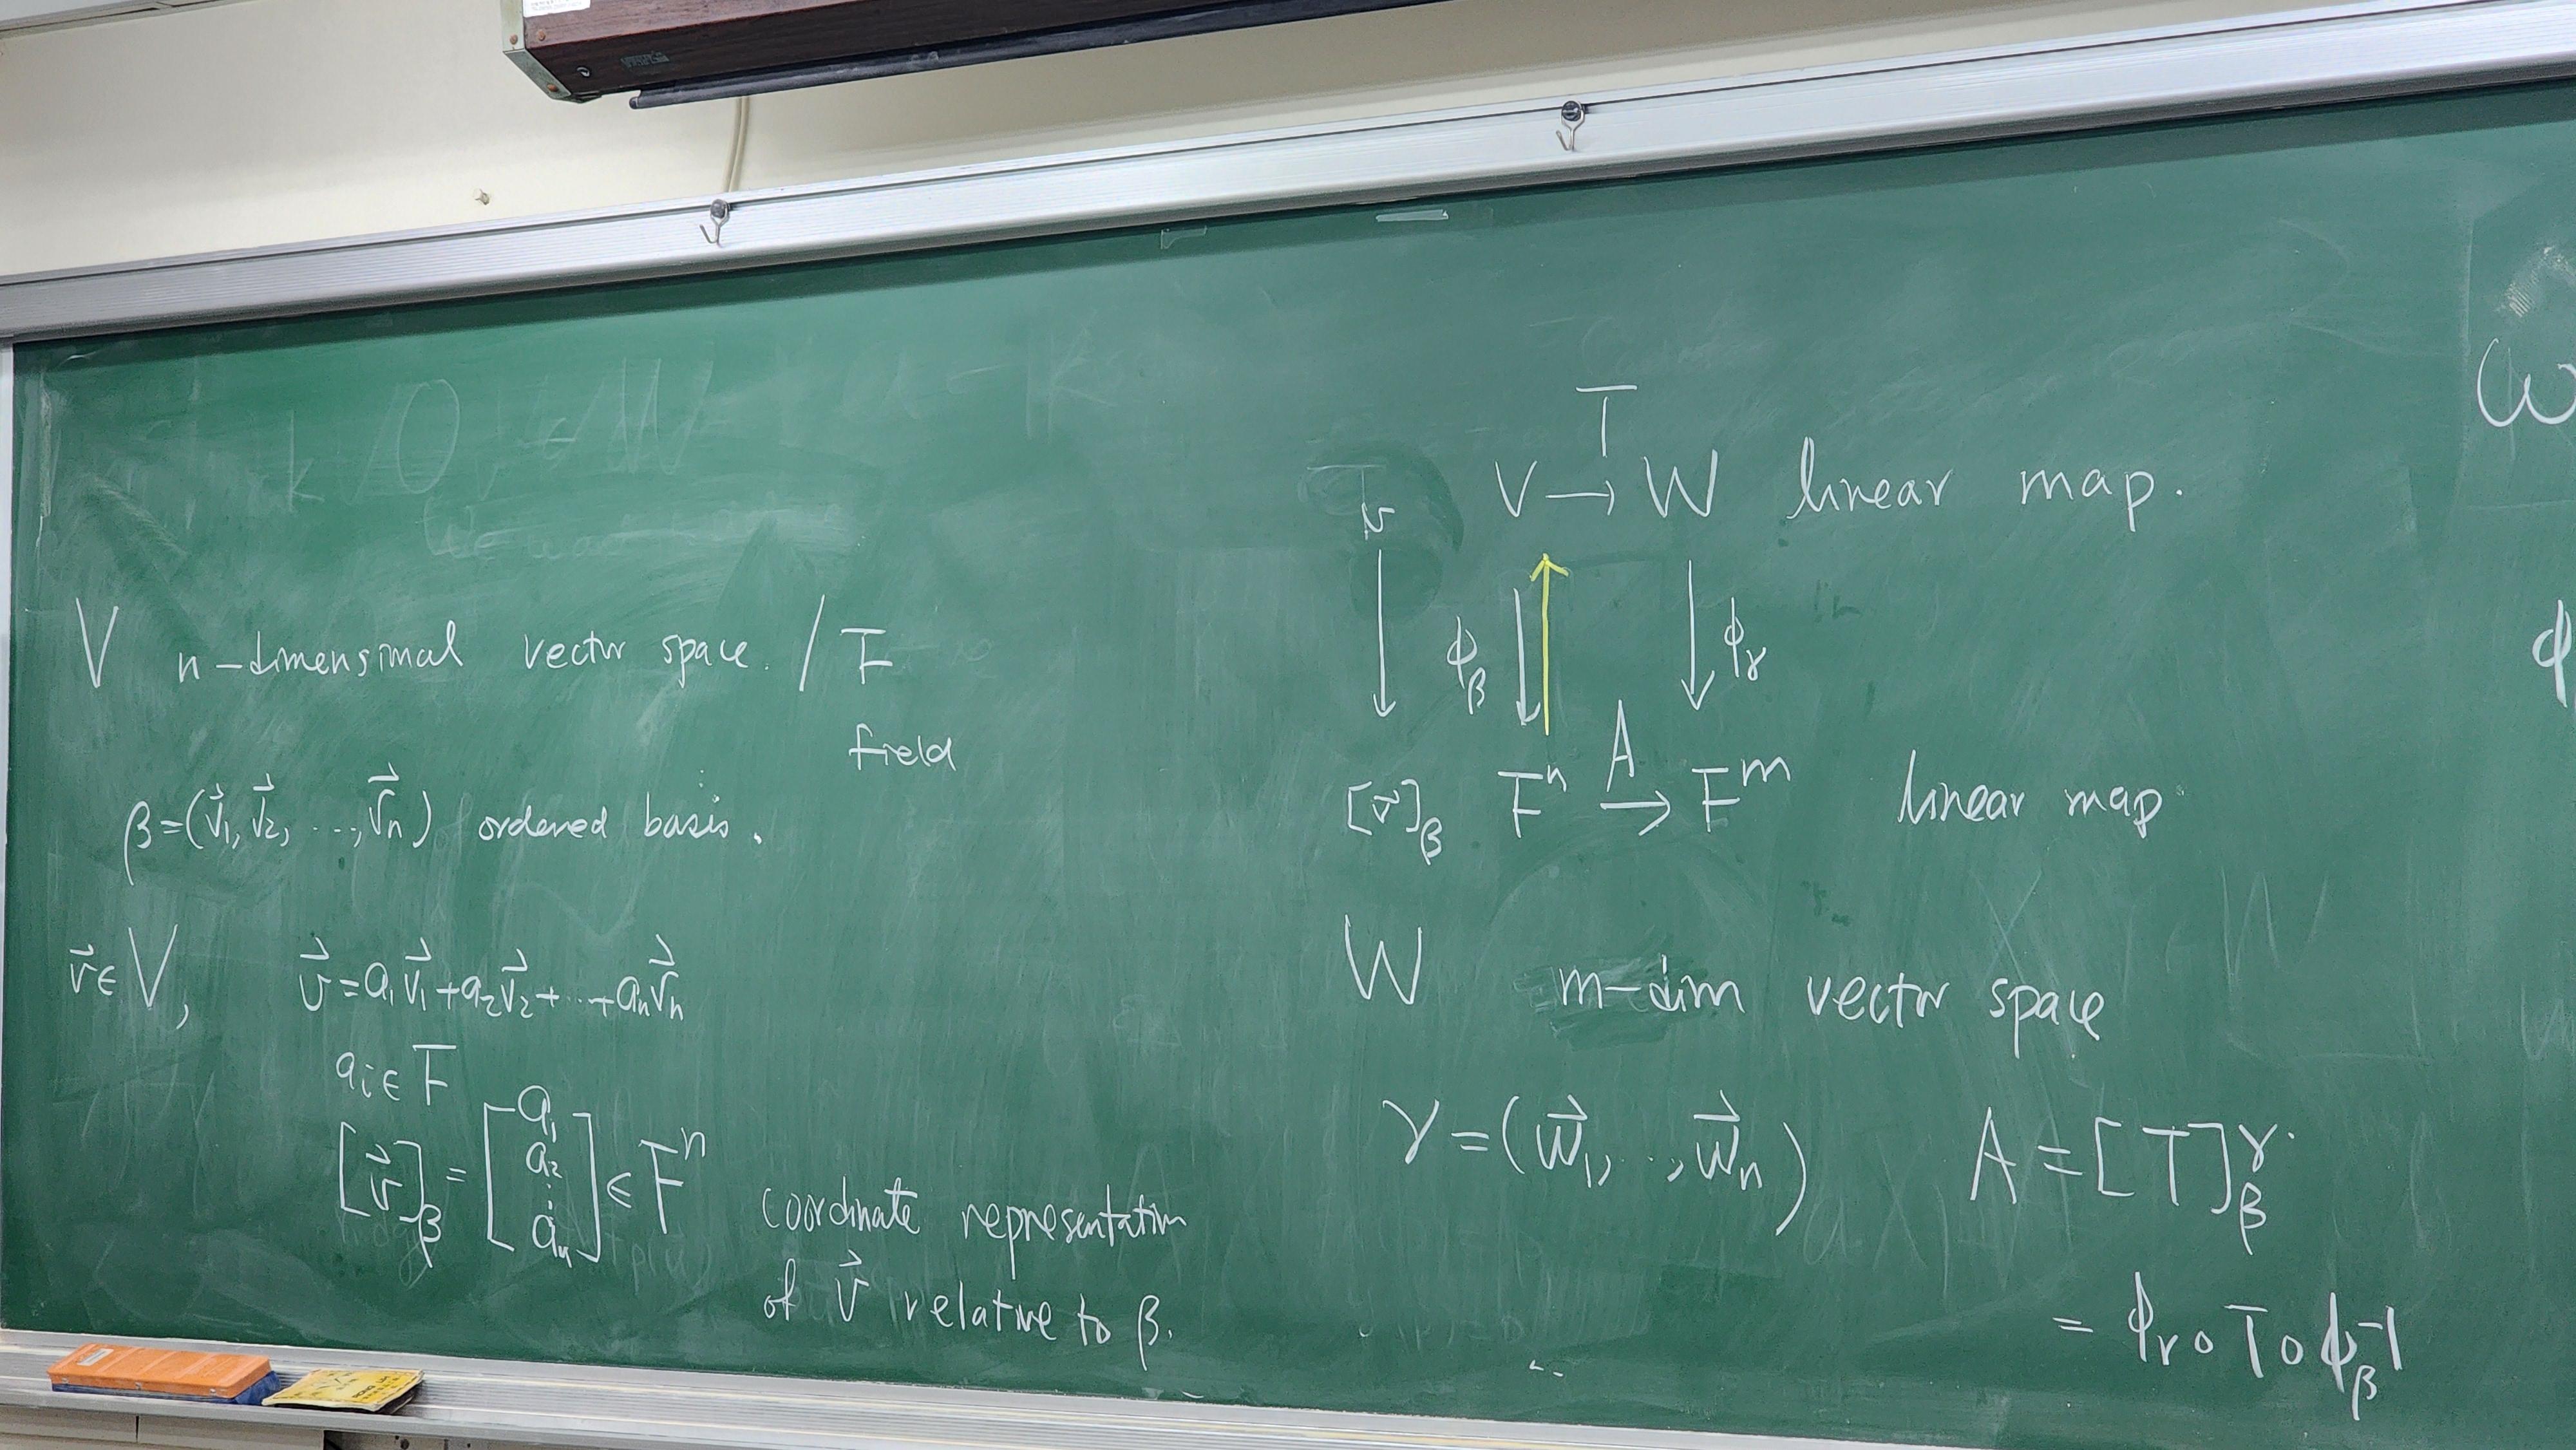 V n-dimensional vector space. / F
field
β=(v⃗₁, v⃗₂, ..., v⃗ₙ) ordered basis.
v⃗ ∈ V, v⃗ = a₁v⃗₁ + a₂v⃗₂ + ... + aₙv⃗ₙ
aᵢ ∈ F
[v⃗]_β = [a₁ a₂ ⋮ aₙ] ∈ Fⁿ coordinate representation
of v⃗ relative to β.
T
v V → W linear map.
↓ ϕ_β ↓ ↑ ↓ ϕ_γ
A
[v⃗]_β Fⁿ → Fᵐ linear map
W m-dim vector space
γ = (w⃗₁, ..., w⃗ₙ) A = [T]_β^γ.
= ϕ_γ ∘ T ∘ ϕ_β⁻¹
ω
ϕ